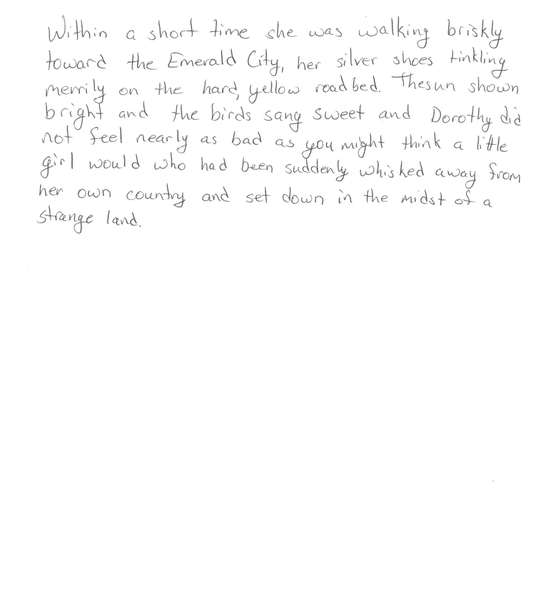 Within a short time she was walking briskly
toward the Emerald City, her silver shoes tinkling
merrily on the hard, yellow roadbed. The sun shown
bright and the birds sang sweet and Dorothy did
not feel nearly as bad as you might think a little
girl would who had been suddenly whisked away from
her own country and set down in the midst of a
strange land.